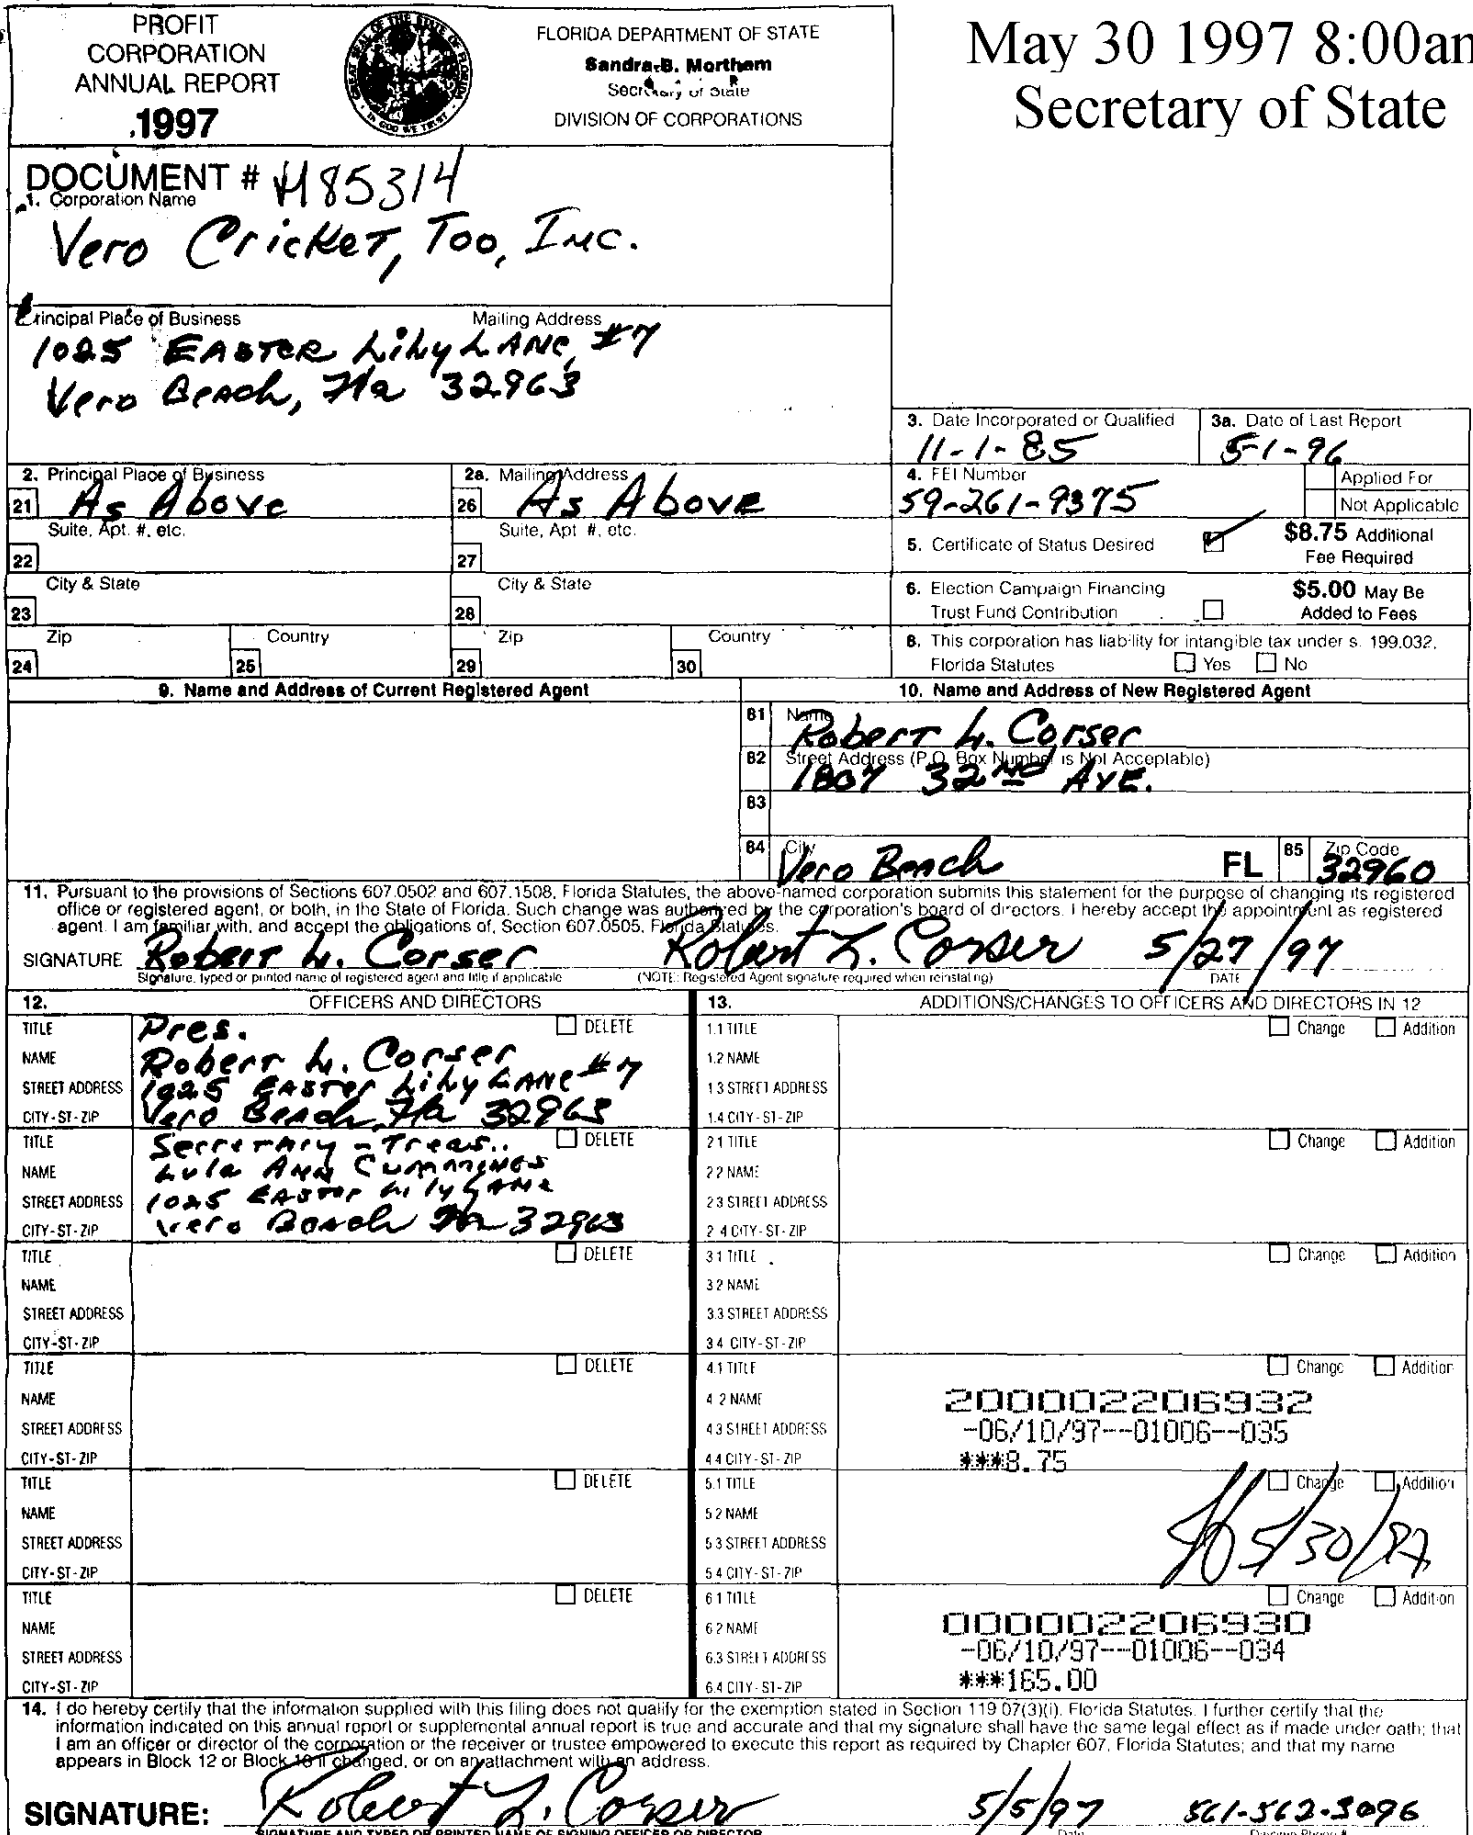 PROFIT
CORPORATION
ANNUAL REPORT
1997
FLORIDA DEPARTMENT OF STATE
Sandra B. Mortham
Secretary of State
DIVISION OF CORPORATIONS
May 30 1997 8:00am
Secretary of State
DOCUMENT # H85314
1. Corporation Name
Vero Cricket, Too, Inc.
Principal Place of Business Mailing Address
1025 Easter Lily Lane, #7
Vero Beach, Fla 32963
3. Date Incorporated or Qualified
11-1-85
3a. Date of Last Report
5-1-96
2. Principal Place of Business
21 As Above
2a. Mailing Address
26 As Above
4. FEI Number
59-261-9375
Applied For
Not Applicable
Suite, Apt. #, etc.
22
Suite, Apt. #, etc.
27
5. Certificate of Status Desired
$8.75 Additional
Fee Required
City & State
23
City & State
28
6. Election Campaign Financing
Trust Fund Contribution
$5.00 May Be
Added to Fees
Zip
24
Country
25
Zip
29
Country
30
8. This corporation has liability for intangible tax under s. 199.032,
Florida Statutes Yes No
9. Name and Address of Current Registered Agent
10. Name and Address of New Registered Agent
81 Name
Robert L. Corser
82 Street Address (P.O. Box Number is Not Acceptable)
1807 32nd Ave.
83
84 City
Vero Beach FL
85 Zip Code
32960
11. Pursuant to the provisions of Sections 607.0502 and 607.1508, Florida Statutes, the above-named corporation submits this statement for the purpose of changing its registered
office or registered agent, or both, in the State of Florida. Such change was authorized by the corporation's board of directors. I hereby accept the appointment as registered
agent. I am familiar with, and accept the obligations of, Section 607.0505, Florida Statutes.
SIGNATURE Robert L. Corser Robert L. Corser 5/27/97
Signature, typed or printed name of registered agent and title if applicable (NOTE: Registered Agent signature required when reinstating) DATE
12. OFFICERS AND DIRECTORS
13. ADDITIONS/CHANGES TO OFFICERS AND DIRECTORS IN 12
TITLE Pres. DELETE
NAME Robert L. Corser
STREET ADDRESS 1025 Easter Lily Lane #7
CITY-ST-ZIP Vero Beach, Fla 32963
1.1 TITLE Change Addition
1.2 NAME
1.3 STREET ADDRESS
1.4 CITY-ST-ZIP
TITLE Secretary - Treas. DELETE
NAME Lula Ann Cummings
STREET ADDRESS 1025 Easter Lily Lane
CITY-ST-ZIP Vero Beach Fla 32963
2.1 TITLE Change Addition
2.2 NAME
2.3 STREET ADDRESS
2.4 CITY-ST-ZIP
TITLE DELETE
NAME
STREET ADDRESS
CITY-ST-ZIP
3.1 TITLE Change Addition
3.2 NAME
3.3 STREET ADDRESS
3.4 CITY-ST-ZIP
TITLE DELETE
NAME
STREET ADDRESS
CITY-ST-ZIP
4.1 TITLE Change Addition
4.2 NAME
4.3 STREET ADDRESS
4.4 CITY-ST-ZIP
200002206932
-06/10/97--01006--035
***8.75
TITLE DELETE
NAME
STREET ADDRESS
CITY-ST-ZIP
5.1 TITLE Change Addition
5.2 NAME
5.3 STREET ADDRESS
5.4 CITY-ST-ZIP
5/30/97
TITLE DELETE
NAME
STREET ADDRESS
CITY-ST-ZIP
6.1 TITLE Change Addition
6.2 NAME
6.3 STREET ADDRESS
6.4 CITY-ST-ZIP
000002206930
-06/10/97--01006--034
***165.00
14. I do hereby certify that the information supplied with this filing does not qualify for the exemption stated in Section 119.07(3)(i), Florida Statutes. I further certify that the
information indicated on this annual report or supplemental annual report is true and accurate and that my signature shall have the same legal effect as if made under oath; that
I am an officer or director of the corporation or the receiver or trustee empowered to execute this report as required by Chapter 607, Florida Statutes; and that my name
appears in Block 12 or Block 13 if changed, or on an attachment with an address.
SIGNATURE: Robert L. Corser 5/5/97 561-562-3096
SIGNATURE AND TYPED OR PRINTED NAME OF SIGNING OFFICER OR DIRECTOR Date Daytime Phone #